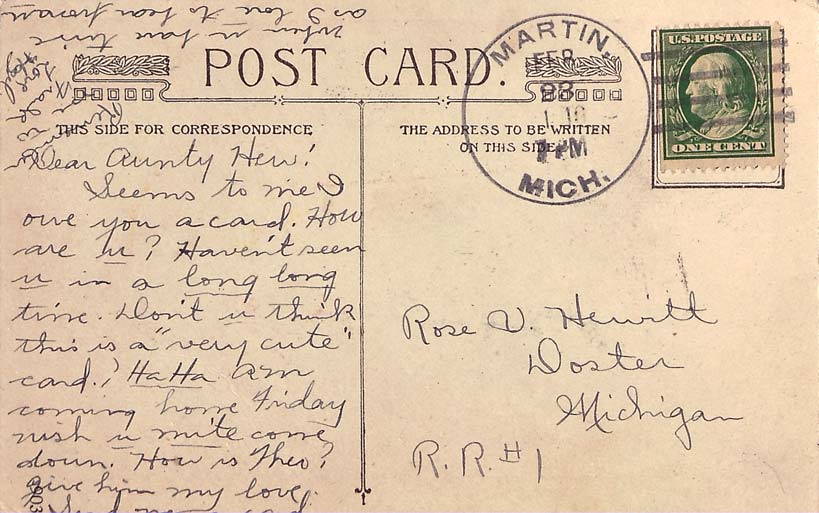 POST CARD.
THIS SIDE FOR CORRESPONDENCE
THE ADDRESS TO BE WRITTEN
ON THIS SIDE
MARTIN,
FEB
23
PM
MICH.
U.S. POSTAGE
ONE CENT
Dear Aunty Hew!
Seems to me I
owe you a card. How
are u? Haven't seen
u in a long long
time. Don't u think
this is a "very cute"
card.? Ha Ha am
coming home Friday
wish u mite come
down. How is Theo?
Give him my love.
Send me a card
when u have time
as I love to hear from
Love
Rose V. Hewitt
Doster
Michigan
R. R. #1